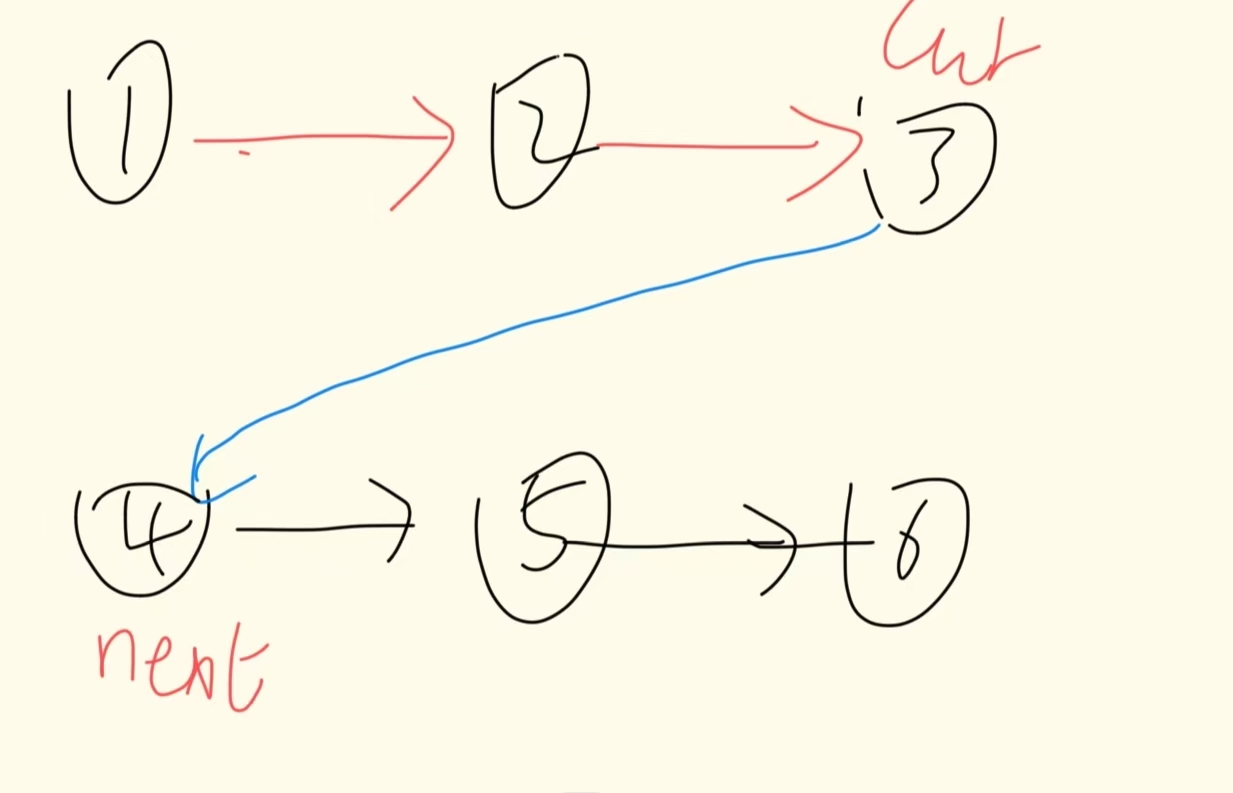 cur
1 2 3
4 5 6
next